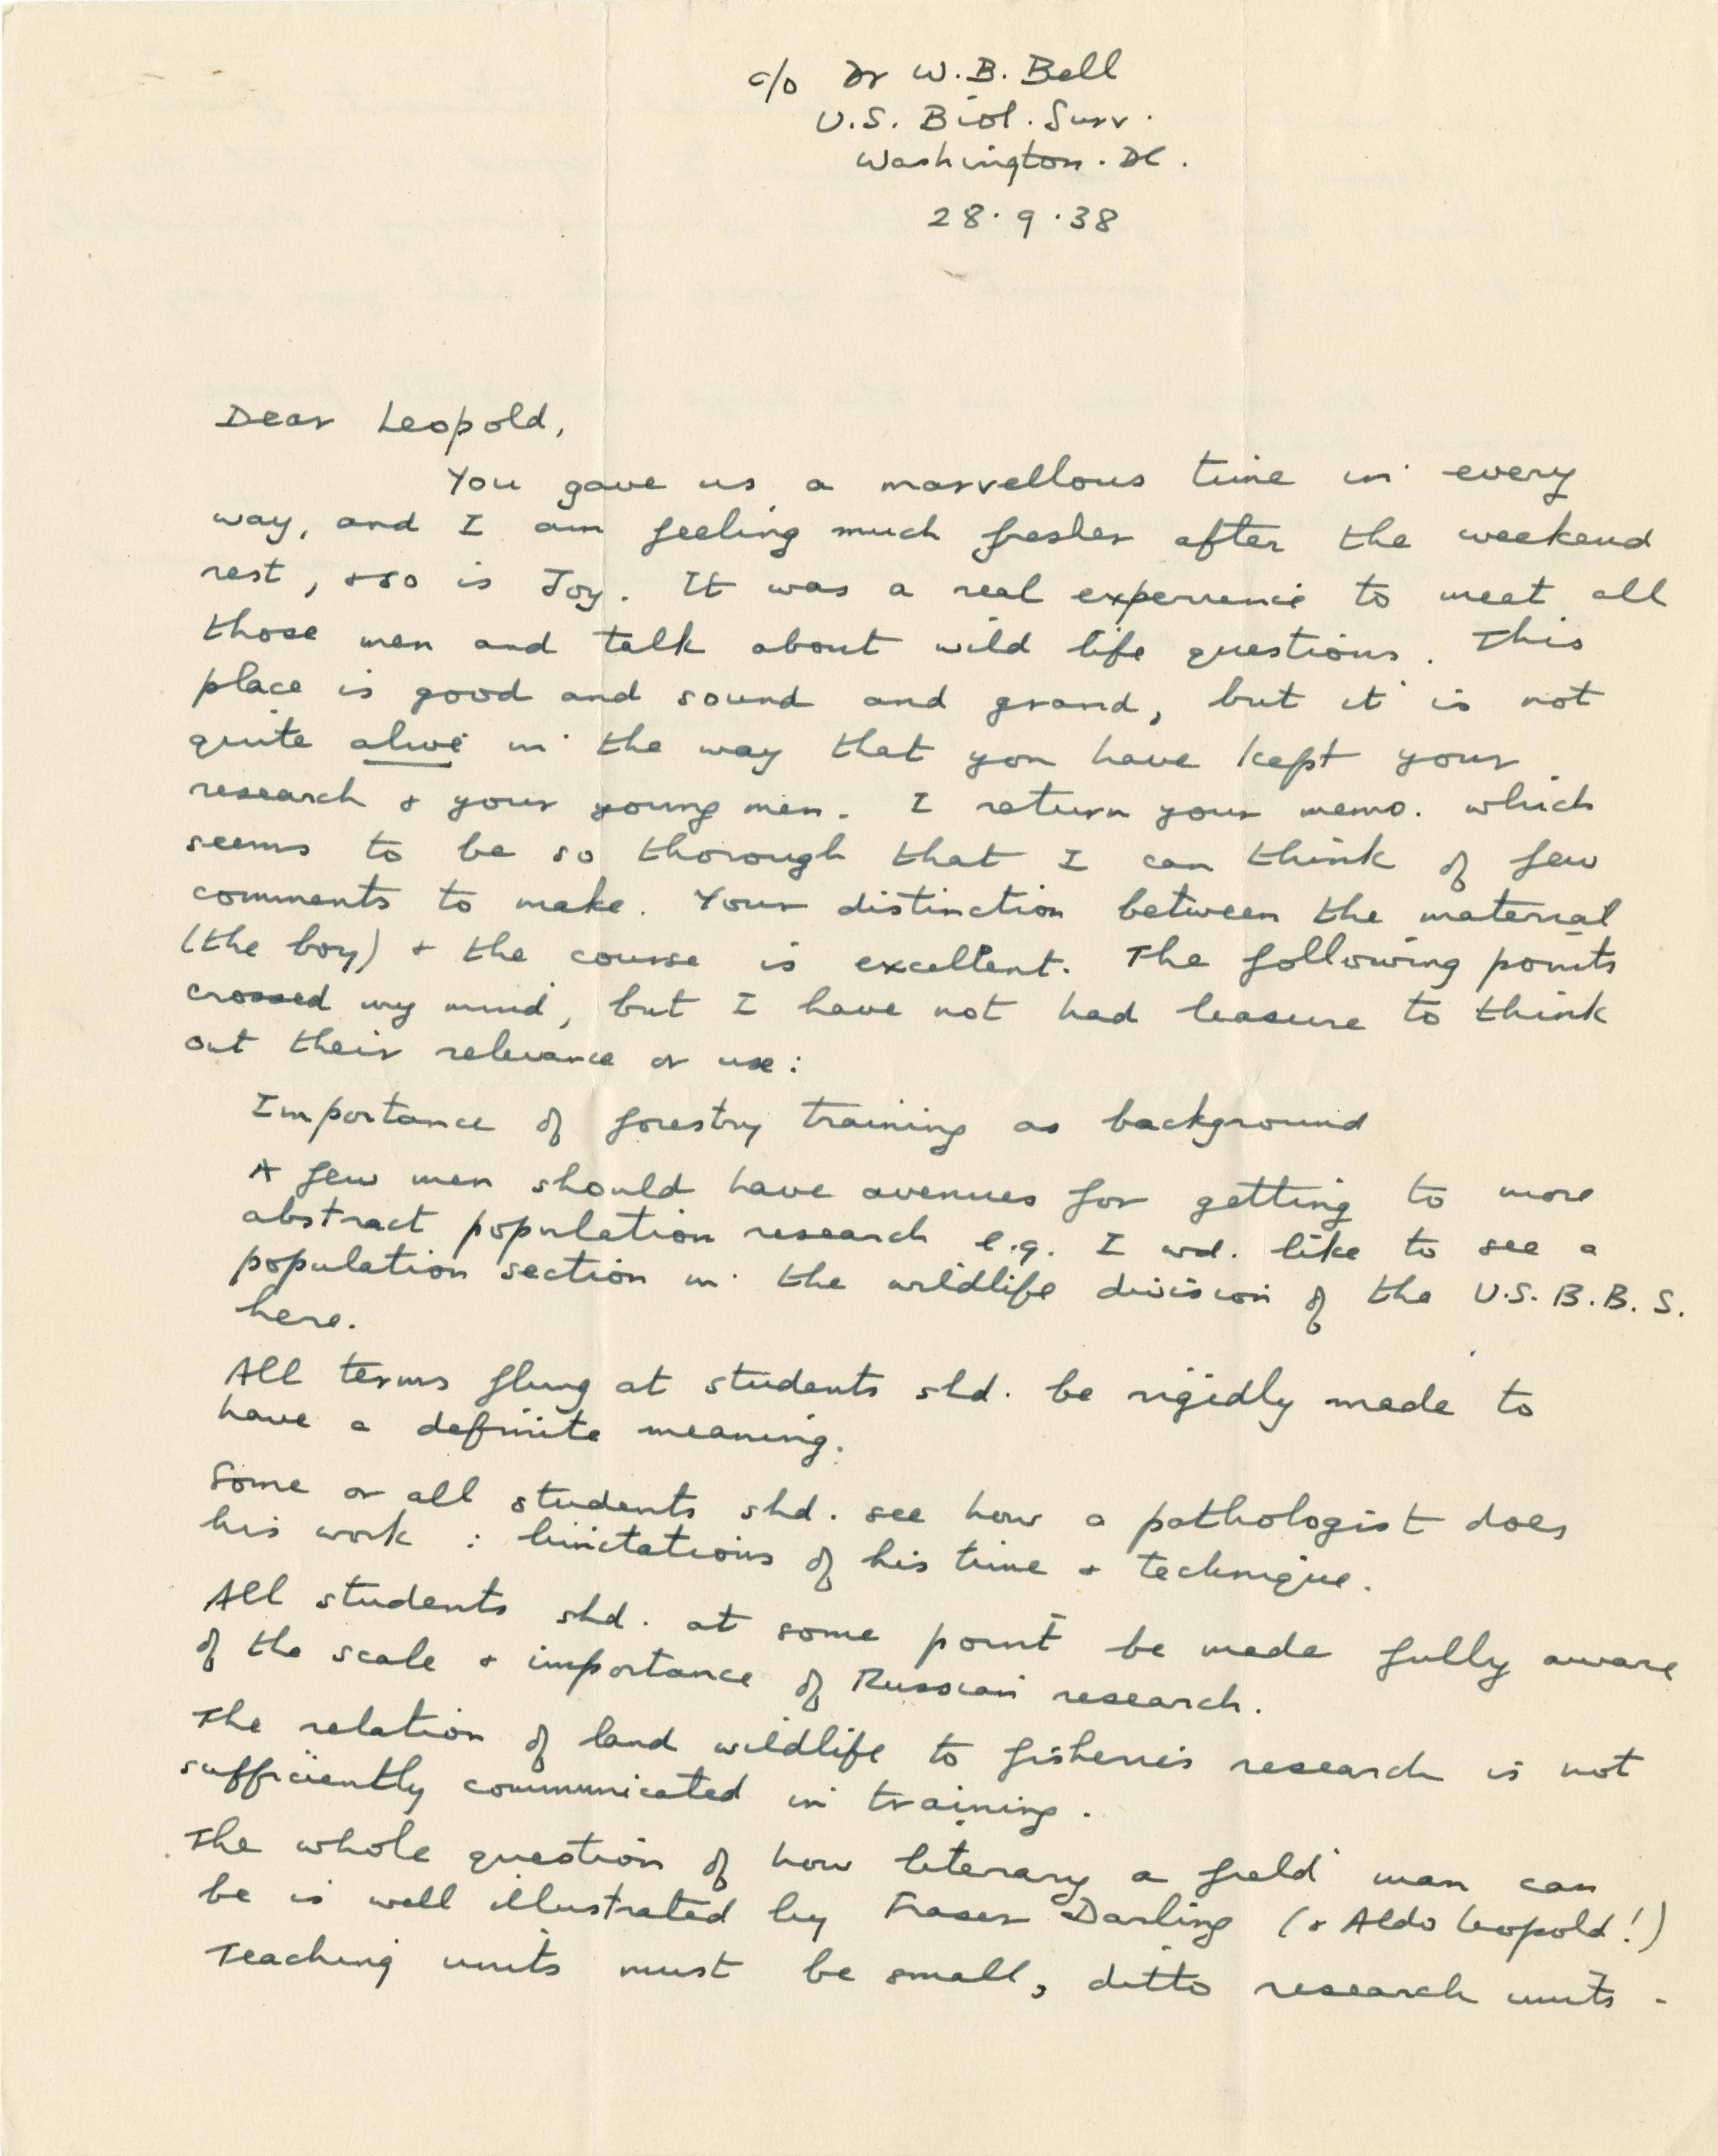 c/o Dr W.B. Bell
U.S. Biol. Surv.
Washington. DC.
28.9.38
Dear Leopold,
You gave us a marvellous time in every
way, and I am feeling much fresher after the weekend
rest, + so is Joy. It was a real experience to meet all
those men and talk about wild life questions. This
place is good and sound and grand, but it is not
quite alive in the way that you have kept your
research + your young men. I return your memo. which
seems to be so thorough that I can think of few
comments to make. Your distinction between the material
(the boy) + the course is excellent. The following points
crossed my mind, but I have not had leasure to think
out their relevance or use:
Importance of forestry training as background
A few men should have avenues for getting to more
abstract population research e.g. I wd. like to see a
population section in the wildlife division of the U.S.B.B.S.
here.
All terms flung at students shd. be rigidly made to
have a definite meaning.
Some or all students shd. see how a pathologist does
his work : limitations of his time + technique.
All students shd. at some point be made fully aware
of the scale + importance of Russian research.
The relation of land wildlife to fisheries research is not
sufficiently communicated in training.
The whole question of how literary a field man can
be is well illustrated by Fraser Darling (+ Aldo Leopold!)
Teaching units must be small, ditto research units.